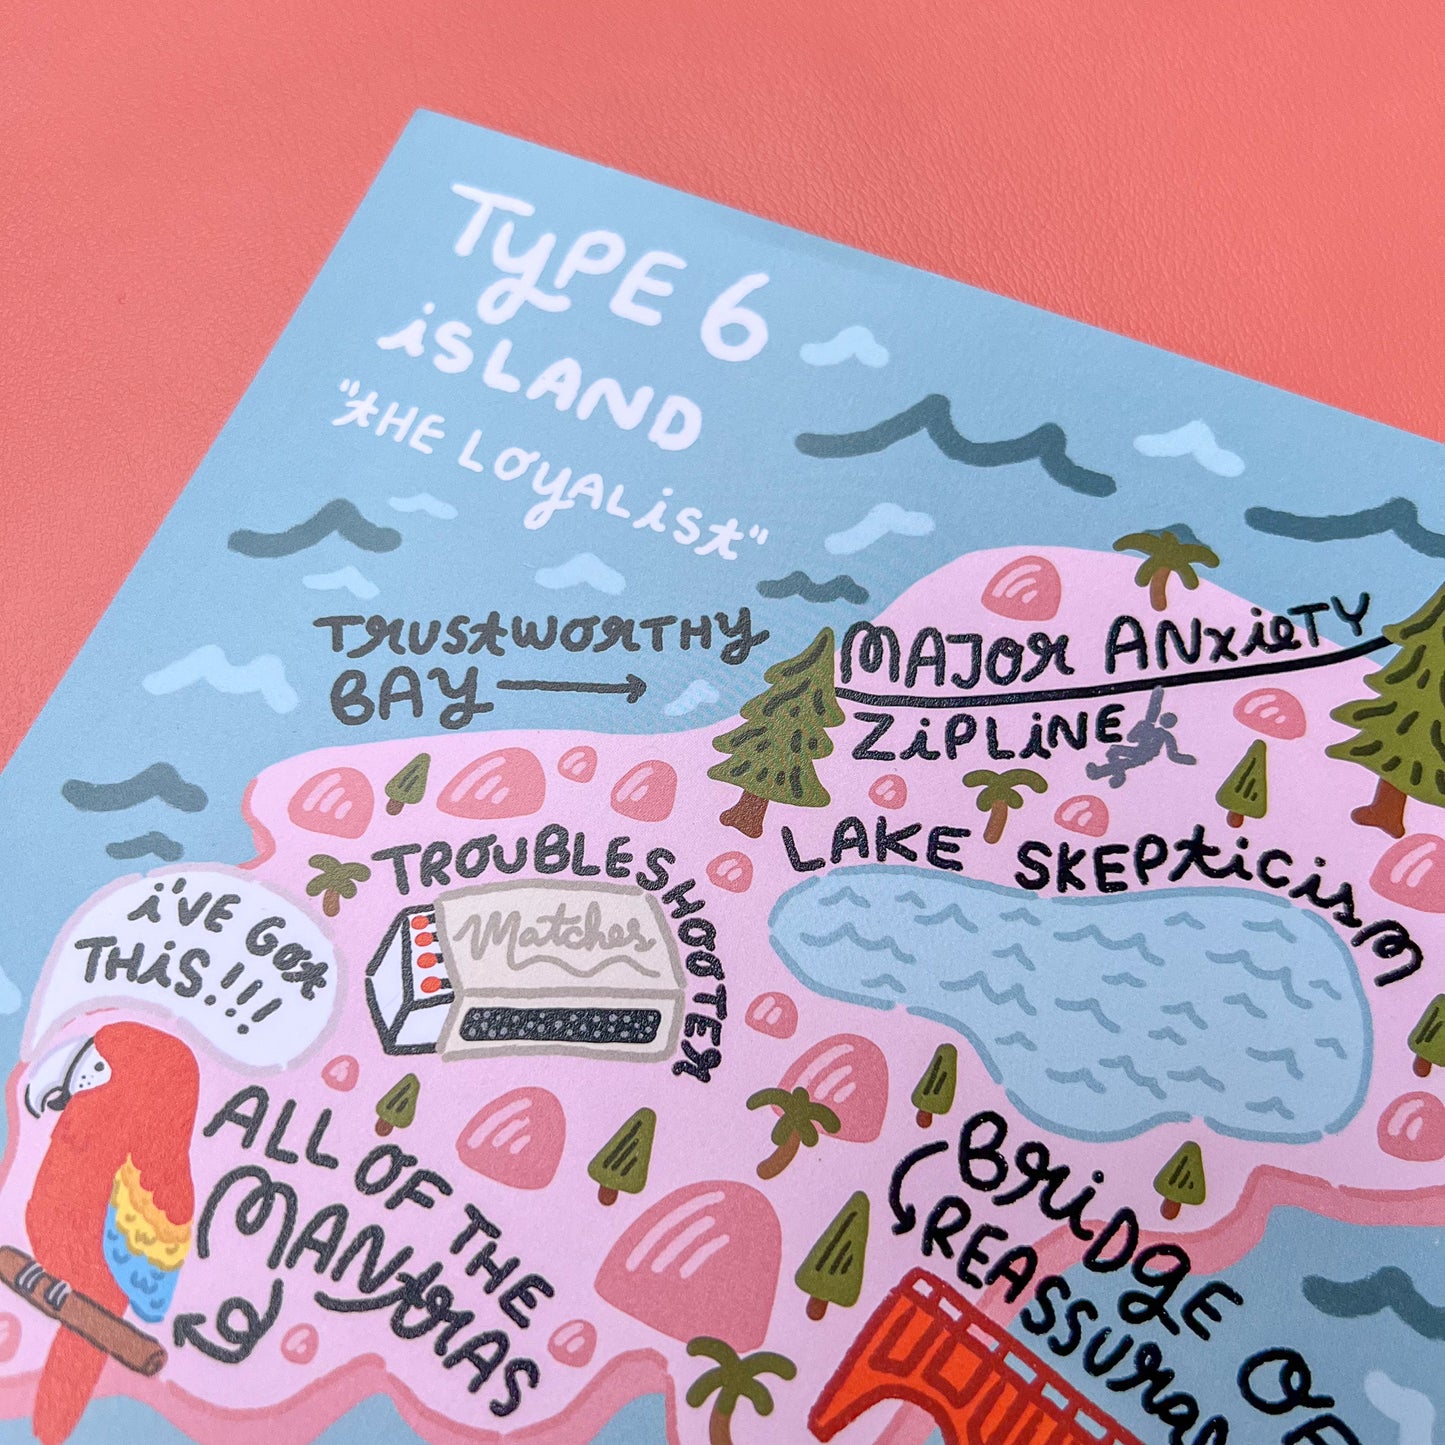 TYPE 6
iSLAND
"tHE LOyALiSt"
TRUStWORTHy
BAy
MAJOR ANxieTY
ZiPLiNE
LAKE SKEPtiCiSM
TROUBLESHOOTER
Matches
i'VE GOt
THiS!!!
ALL OF THE
MANtRAS
BRiDgE OF